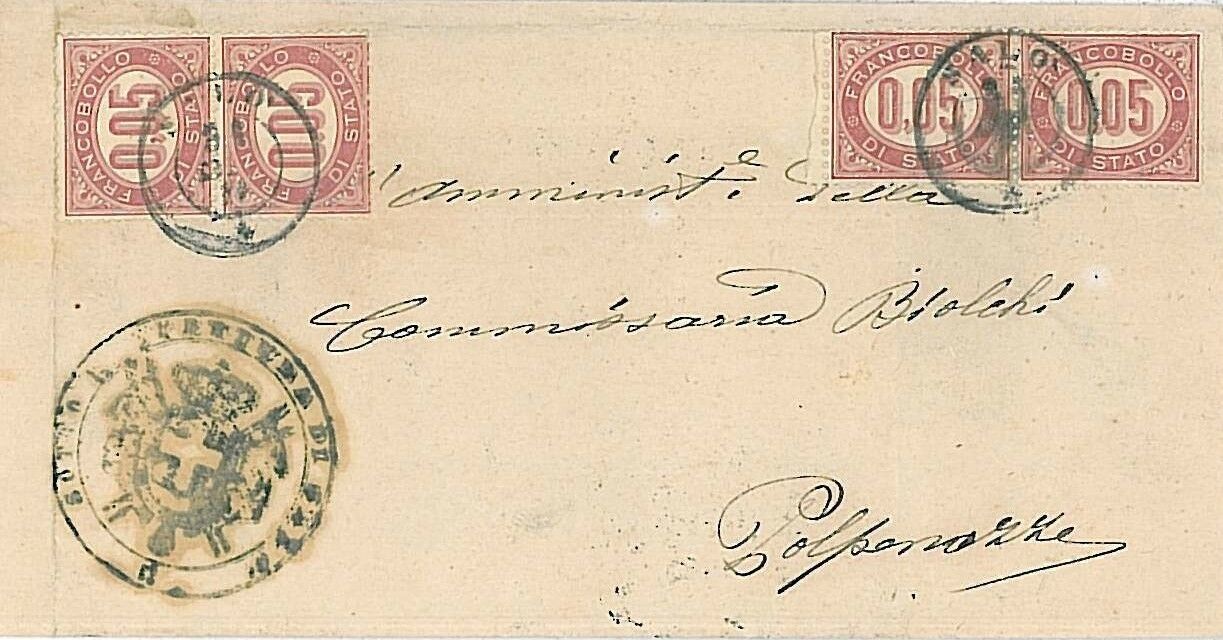 FRANCOBOLLO DI STATO
0,05
FRANCOBOLLO DI STATO
0,05
FRANCOBOLLO DI STATO
0,05
FRANCOBOLLO DI STATO
0,05
Amminist.e della
Commissaria Biolchi
Polpenazze
SOTTO PREFETTURA DI